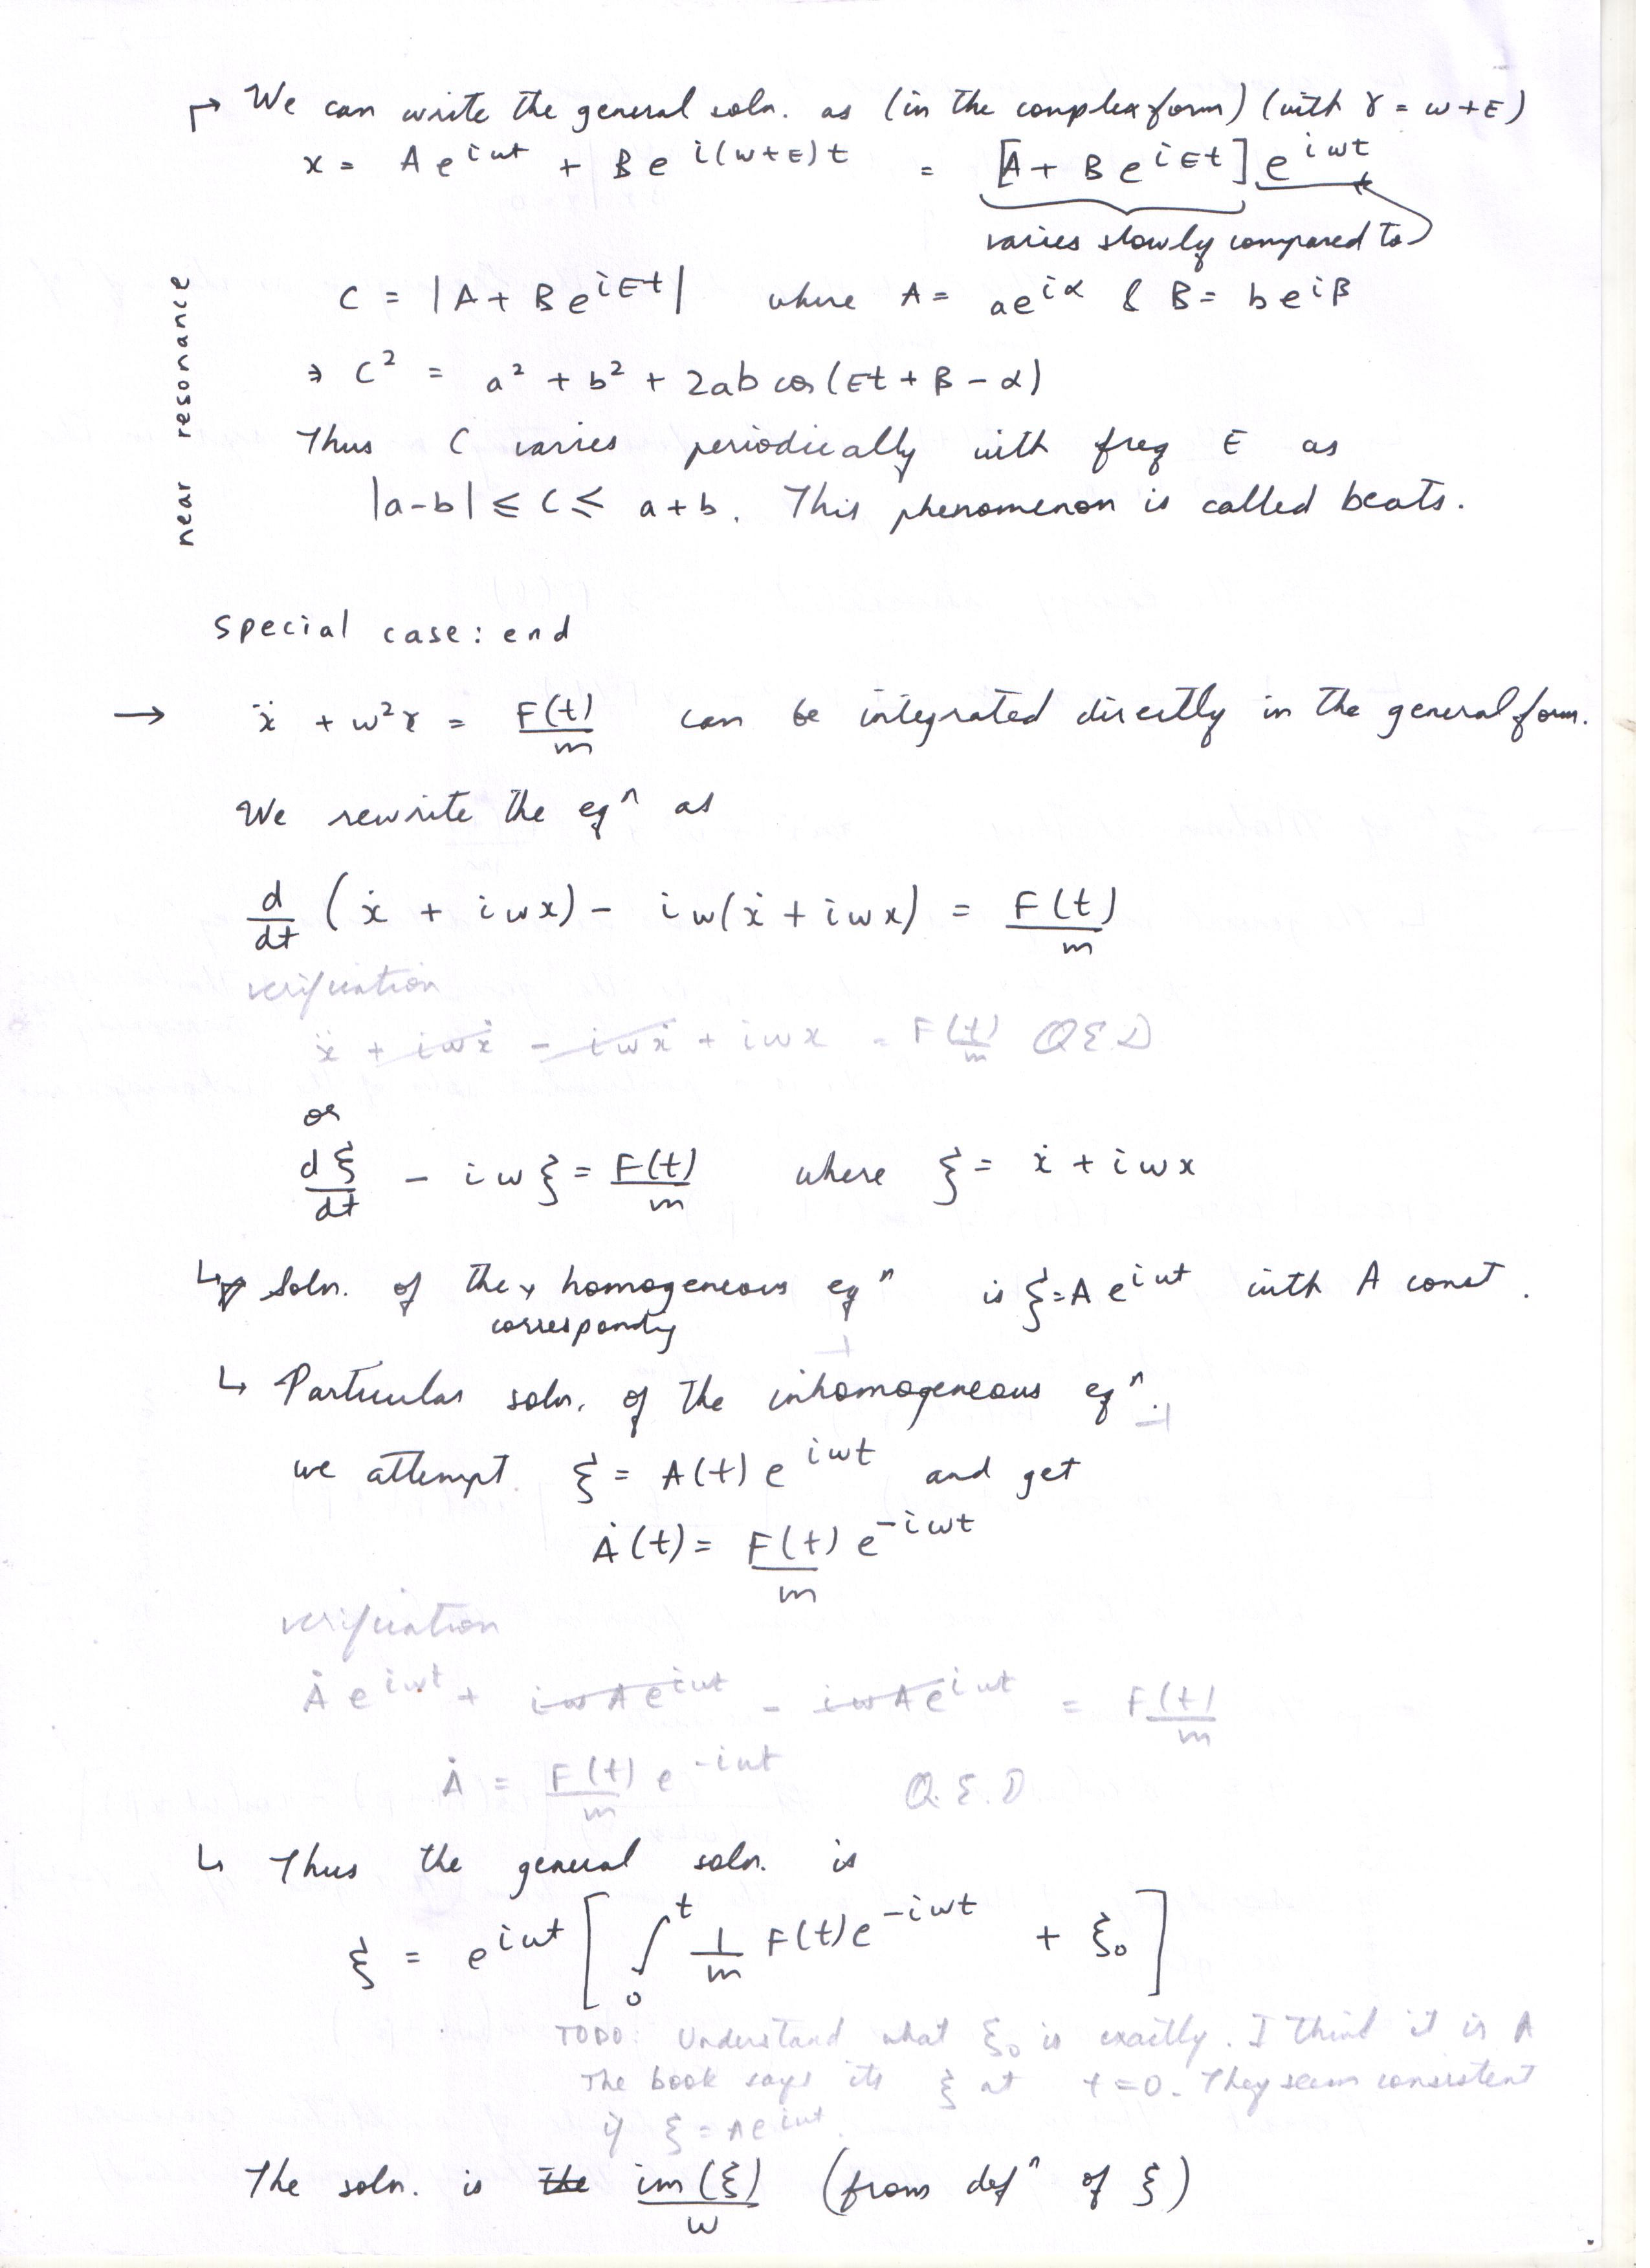 ↱ We can write the general soln. as (in the complex form) (with γ = ω + ε)
x = A e^{iωt} + B e^{i(ω+ε)t} = [A + B e^{iεt}] e^{iωt}
varies slowly compared to
near resonance
C = |A + B e^{iεt}| where A = a e^{iα} & B = b e^{iβ}
⇒ C² = a² + b² + 2ab cos(εt + β − α)
Thus C varies periodically with freq ε as
|a−b| ≤ C ≤ a+b. This phenomenon is called beats.
special case: end
→ ẍ + ω²x = F(t)/m can be integrated directly in the general form.
We rewrite the eqⁿ as
d/dt (ẋ + iωx) − iω(ẋ + iωx) = F(t)/m
verification
ẍ + iωẋ − iωẋ + iωx = F(t)/m QED
or
dξ/dt − iωξ = F(t)/m where ξ = ẋ + iωx
↳ Soln. of the homogeneous eqⁿ is ξ = A e^{iωt} with A const.
correspondg
↳ Particular soln. of the inhomogeneous eqⁿ.
we attempt ξ = A(t) e^{iωt} and get
Ȧ(t) = F(t)/m e^{−iωt}
verification
Ȧ e^{iωt} + iωA e^{iωt} − iωA e^{iωt} = F(t)/m
Ȧ = F(t)/m e^{−iωt} Q.E.D
↳ Thus the general soln. is
ξ = e^{iωt} [ ∫₀^t 1/m F(t) e^{−iωt} + ξ₀ ]
TODO: Understand what ξ₀ is exactly. I think it is A
The book says its ξ at t=0. They seem consistent
if ξ = A e^{iωt}.
The soln. is the im(ξ)/ω (from defⁿ of ξ)